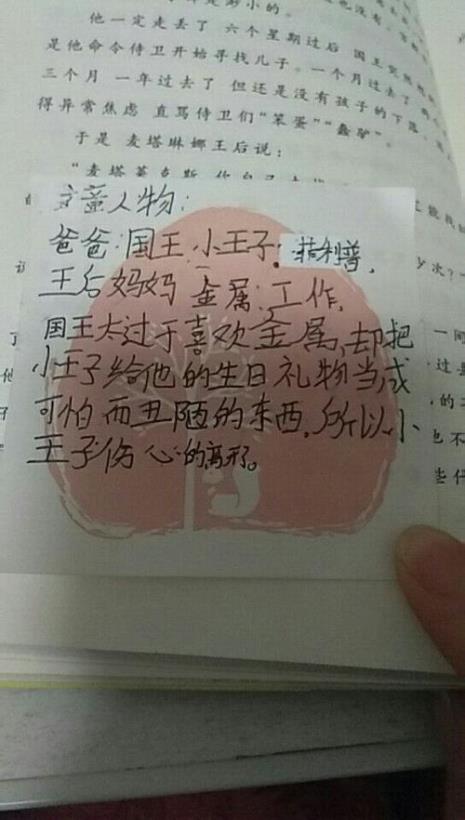 他一定走丢了 六个星期过后 国王突然
是他命令侍卫开始寻找儿子。一个月过去了
三个月 一年过去了 但还是没有孩子的下落
得异常焦虑 直骂侍卫们“笨蛋”“蠢驴”。
于是 麦塔琳娜王后说：
主要人物：
爸爸：国王 小王子：菲利普，
王后妈妈 金属：工作，
国王太过于喜欢金属，却把
小王子给他的生日礼物当成
可怕而丑陋的东西，所以小
王子伤心的离开。